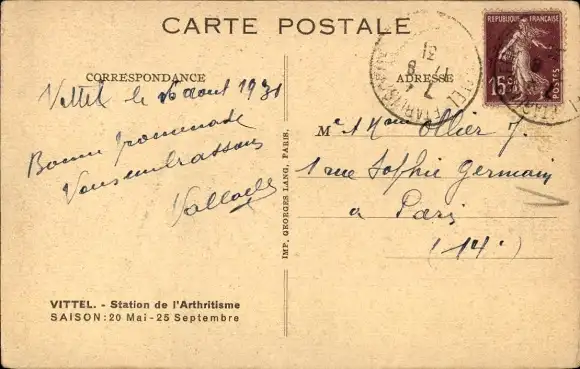 CARTE POSTALE
CORRESPONDANCE
Vittel le 16 aout 1931
Bonne promenade
Vous embrassons
ADRESSE
REPUBLIQUE FRANÇAISE
15c
POSTES
31
Me & Mme Ollier J.
1 rue Sophie Germain
a Paris
(14e)
IMP. GEORGES LANG, PARIS.
VITTEL. - Station de l'Arthritisme
SAISON: 20 Mai - 25 Septembre